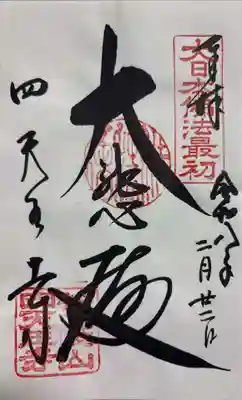 奉拝
大日本佛法最初
令和八年
二月廿二日
大悲殿
四天王寺